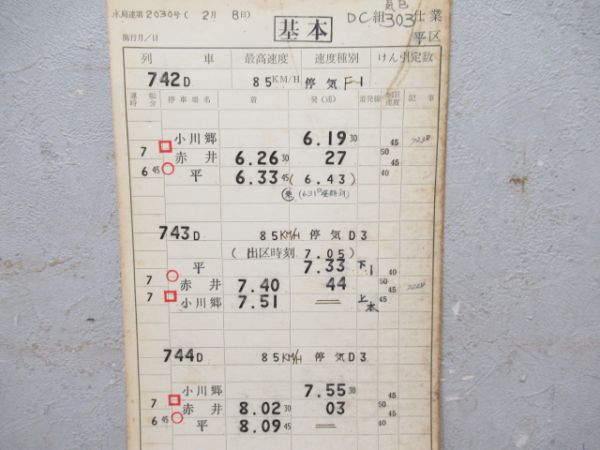 水局達第2030号( 2月 8日)
基本
気B
DC組303仕業
施行月/日
平区
列 車 最高速度 速度種別 けん引定数
742D 85KM/H 停気F1
運転時分 停車場名 着 発(通) 着発線 制限速度 記事
小川郷 6.19 30 45
7 赤井 6.26 30 27 50 45
6 45 平 6.33 45 (6.43) 40
743D 85KM/H 停気D3
(出区時刻 7.05)
平 7.33 下1 40
7 赤井 7.40 44 50 45
7 小川郷 7.51 上本 45
744D 85KM/H 停気D3
小川郷 7.55 30 45
7 赤井 8.02 30 03 50 45
6 45 平 8.09 45 40